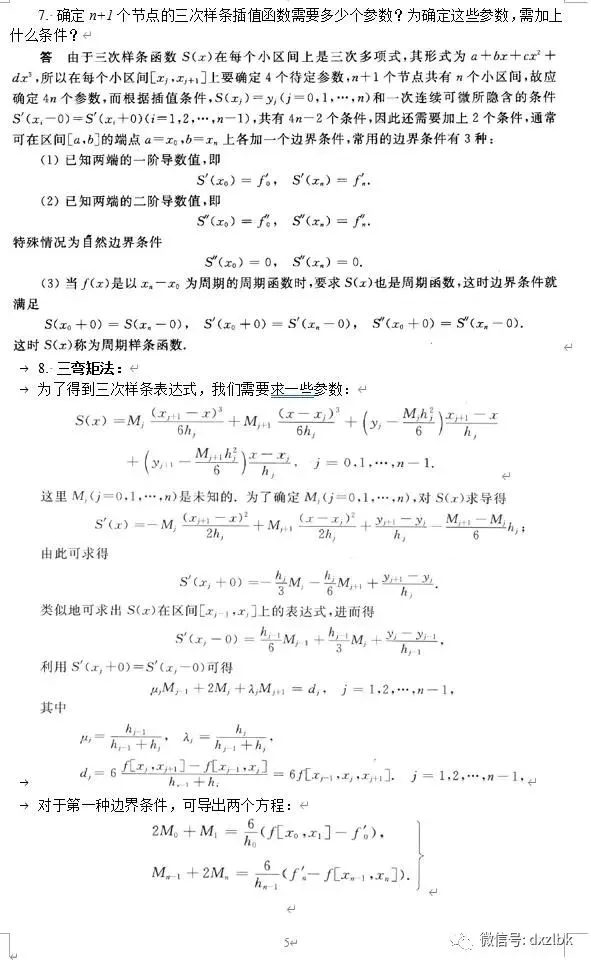 7. 确定 n+1 个节点的三次样条插值函数需要多少个参数？为确定这些参数,需加上
什么条件？
答 由于三次样条函数 S(x)在每个小区间上是三次多项式,其形式为 a+bx+cx²+
dx³,所以在每个小区间[xⱼ,xⱼ₊₁]上要确定 4 个待定参数,n+1 个节点共有 n 个小区间,故应
确定 4n 个参数,而根据插值条件,S(xⱼ)=yⱼ(j=0,1,…,n)和一次连续可微所隐含的条件
S′(xᵢ-0)=S′(xᵢ+0)(i=1,2,…,n-1),共有 4n-2 个条件,因此还需要加上 2 个条件,通常
可在区间[a,b]的端点 a=x₀,b=xₙ 上各加一个边界条件,常用的边界条件有 3 种:
(1) 已知两端的一阶导数值,即
S′(x₀) = f′₀, S′(xₙ) = f′ₙ.
(2) 已知两端的二阶导数值,即
S″(x₀) = f″₀, S″(xₙ) = f″ₙ.
特殊情况为自然边界条件
S″(x₀) = 0, S″(xₙ) = 0.
(3) 当 f(x)是以 xₙ-x₀ 为周期的周期函数时,要求 S(x)也是周期函数,这时边界条件就
满足
S(x₀+0) = S(xₙ-0), S′(x₀+0) = S′(xₙ-0), S″(x₀+0) = S″(xₙ-0).
这时 S(x)称为周期样条函数.
→ 8. 三弯矩法：
→ 为了得到三次样条表达式，我们需要求一些参数：
S(x) = Mⱼ (xⱼ₊₁-x)³/6hⱼ + Mⱼ₊₁ (x-xⱼ)³/6hⱼ + (yⱼ - Mⱼhⱼ²/6) (xⱼ₊₁-x)/hⱼ
+ (yⱼ₊₁ - Mⱼ₊₁hⱼ²/6) (x-xⱼ)/hⱼ, j = 0,1,…,n-1.
这里 Mⱼ(j=0,1,…,n)是未知的. 为了确定 Mⱼ(j=0,1,…,n),对 S(x)求导得
S′(x) = -Mⱼ (xⱼ₊₁-x)²/2hⱼ + Mⱼ₊₁ (x-xⱼ)²/2hⱼ + (yⱼ₊₁-yⱼ)/hⱼ - (Mⱼ₊₁-Mⱼ)/6 hⱼ;
由此可求得
S′(xⱼ+0) = -hⱼ/3 Mⱼ - hⱼ/6 Mⱼ₊₁ + (yⱼ₊₁-yⱼ)/hⱼ.
类似地可求出 S(x)在区间[xⱼ₋₁,xⱼ]上的表达式,进而得
S′(xⱼ-0) = hⱼ₋₁/6 Mⱼ₋₁ + hⱼ₋₁/3 Mⱼ + (yⱼ-yⱼ₋₁)/hⱼ₋₁,
利用 S′(xⱼ+0)=S′(xⱼ-0)可得
μⱼMⱼ₋₁ + 2Mⱼ + λⱼMⱼ₊₁ = dⱼ, j = 1,2,…,n-1,
其中
μⱼ = hⱼ₋₁/(hⱼ₋₁+hⱼ), λⱼ = hⱼ/(hⱼ₋₁+hⱼ),
→ dⱼ = 6 (f[xⱼ,xⱼ₊₁]-f[xⱼ₋₁,xⱼ])/(hⱼ₋₁+hⱼ) = 6f[xⱼ₋₁,xⱼ,xⱼ₊₁]. j = 1,2,…,n-1,
→ 对于第一种边界条件，可导出两个方程：
2M₀ + M₁ = 6/h₀ (f[x₀,x₁] - f′₀),
Mₙ₋₁ + 2Mₙ = 6/hₙ₋₁ (f′ₙ - f[xₙ₋₁,xₙ]).
5
微信号: dxzlbk